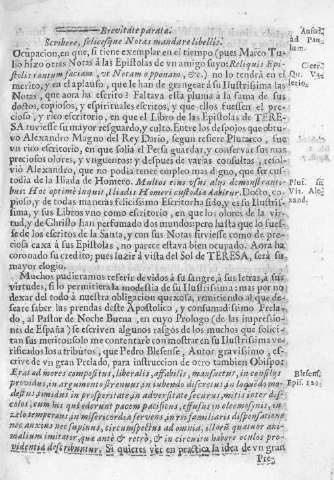 Brevitate parata.
Scribere, felicesque Notas mandare libellis.
Ocupacion, en que, si tiene exemplar en el tiempo (pues Marco Tu-
lio hizo otras Notas à las Epistolas de vn amigo suyo: Reliquis Epis-
tolis tantum faciam, vt Notam opponam, &c.) no lo tendrà en el
merito, y en el aplauso, que le han de grangear à su Ilustrissima las
Notas, que aora ha escrito? Faltava esta pluma à la fama de sus
doctos, copiosos, y espirituales escritos, y que ellos fuessen el pre-
cioso, y rico escritorio, en que el Libro de las Epistolas de TERE-
SA tuviesse su mayor resguardo, y culto. Entre los despojos que obtu-
vo Alexandro Magno del Rey Dario, segun refiere Plutarco, fue
vn rico escritorio, en que solia el Persa guardar, y conservar sus mas
preciosos olores, y vnguentos: y despues de varias consultas, resol-
viò Alexandro, que no podia tener empleo mas digno, que ser cus-
todia de la Iliada de Homero. Multos eius vsus alijs demonstranti-
bus: Hoc optimè inquit, Iliados Homeri custodia dabitur. Docto, co-
pioso, y de todas maneras felicissimo Escritor ha sido, y es su Ilustris-
sima, y sus Libros vno como escritorio, en que los olores de la vir-
tud, y de Christo han perfumado dos mundos: pero hasta que los fues-
se de los escritos de la Santa, y con sus Notas sirviesse como de pre-
ciosa caxa à sus Epistolas, no parece estava bien ocupado. Aora ha
coronado su credito; pues luzir à vista del Sol de TERESA, serà su
mayor elogio.
Muchos pudieramos referir devidos à su sangre, à sus letras, à sus
virtudes, si lo permitiera la modestia de su Ilustrissima: mas por no
dexar del todo à nuestra obligacion quexosa, remitiendo al que de-
seare saber las prendas deste Apostolico, y consumadissimo Prela-
do, al Pastor de Noche Buena, en cuyo Prologo (de las impressio-
nes de España) se escriven algunos rasgos de los muchos que solici-
tan sus meritos: solo me contentarè con mostrar en su Ilustrissima ve-
rificados los atributos, que Pedro Blesense, Autor gravissimo, es-
crive de vn gran Prelado, para instruccion de otro tambien Obispo:
Eras ad mores compositus, liberalis, affabilis, mansuetus, in consilijs
providus, in argumento strenuus, in iubendo discretus, in loquendo mo-
destus, timidus in prosperitate, in adversitate securus, mitis inter dis-
colos, cum his qui oderunt pacem pacificus, effusus in eleemosinis, in
zelo temperans, in misericordia fervens, in rei familiaris dispensatione
nec anxius nec supinus, circumspectus ad omnia, illorum quatuor ani-
malium imitator, quæ ante & retrò, & in circuitu habere oculos pro-
videntia describuntur. Si quieres ver en practica la idea de vn gran
Pre-
ad
Cicer.
sand.
Blesens.